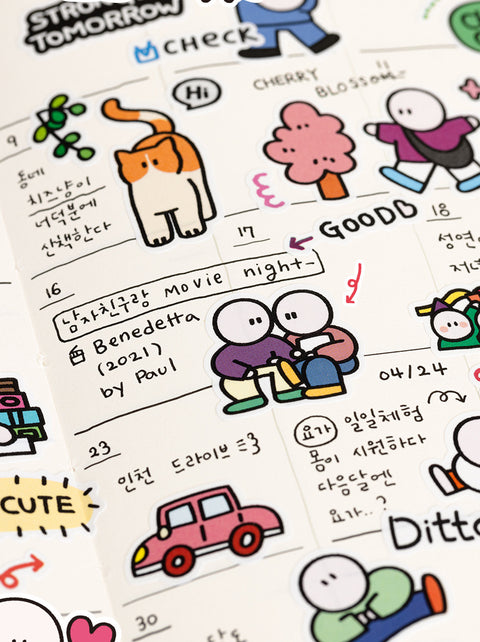 STRONG
TOMORROW
CHECK
Hi
CHERRY
BLOSSOM
9
동네
치즈냥이
너덕분에
산책한다
17
GOODB
18
성연
저녁
16
남자친구랑 movie night~
Benedetta
(2021)
by Paul
04/24
23
인천 드라이브
요가 일일체험
몸이 시원하다
다음달엔
요가..?
CUTE
Ditto
30